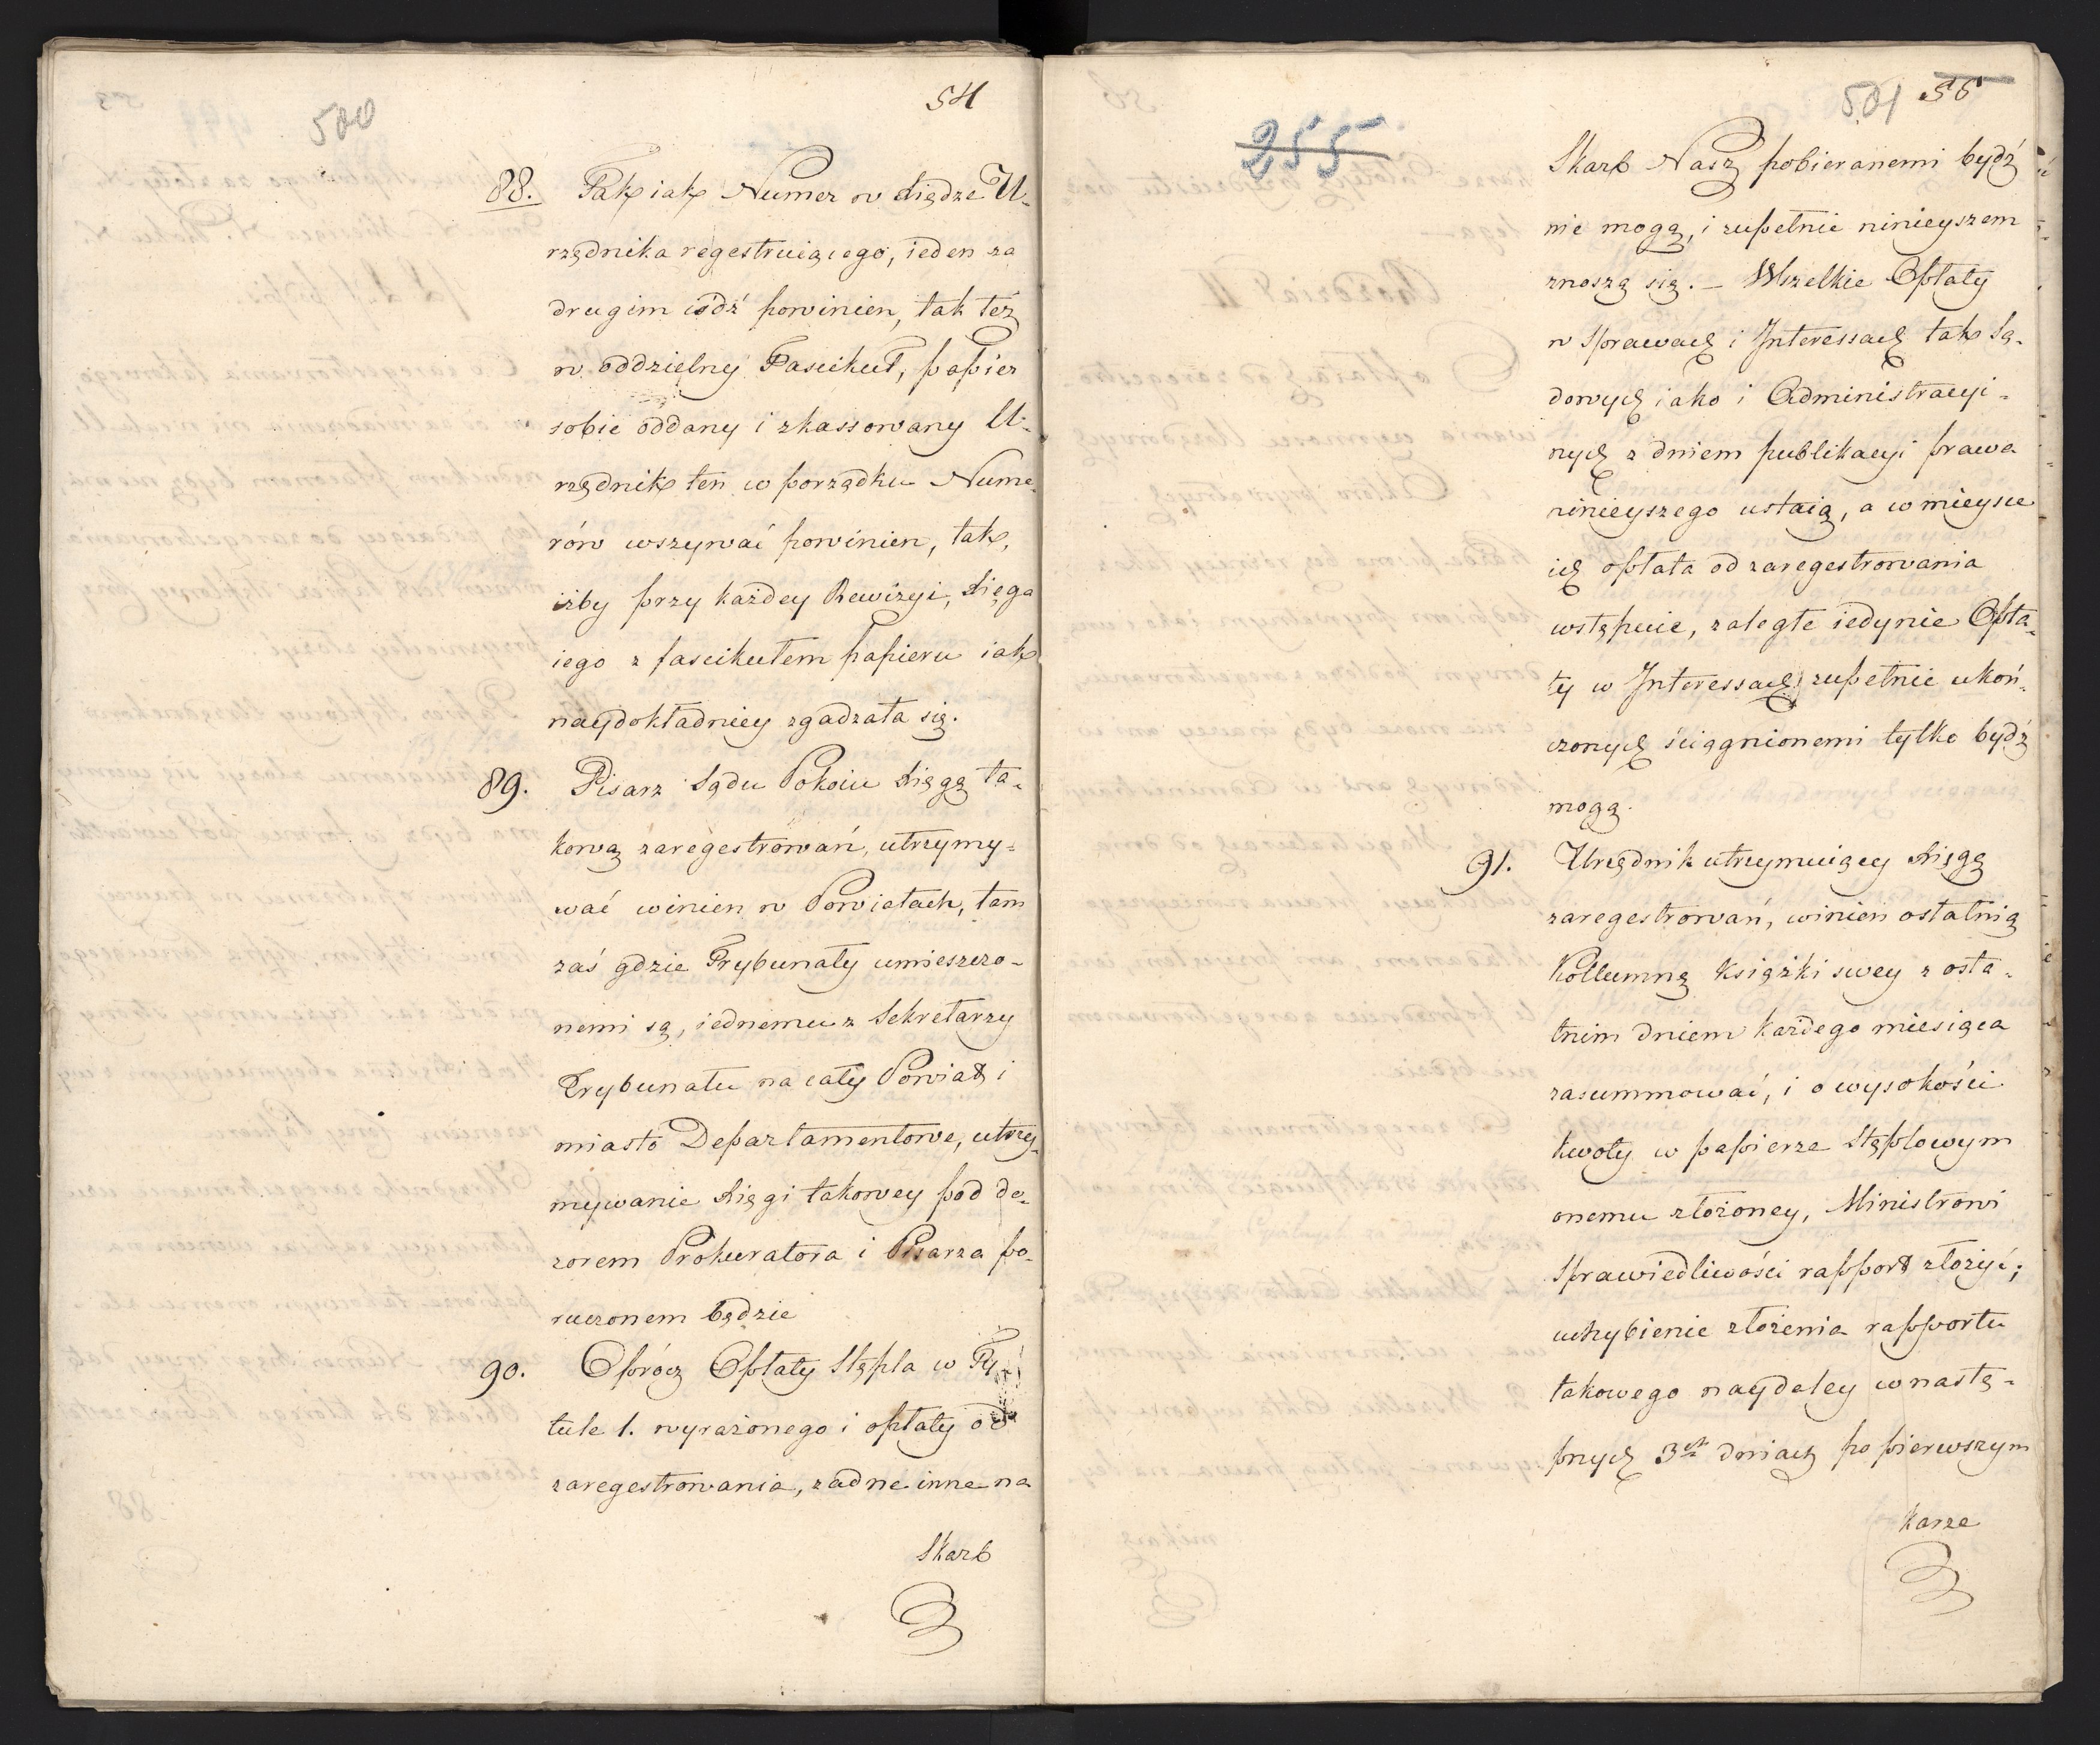 500
54
88. Tak iak Numer w Xiędze U-
rzędnika regestruiącego, ieden za
drugim iśdź powinien, tak też
w oddzielny Fascikuł, papier
sobie oddany i zkassowany U-
rzędnik ten w porządku Nume-
rów wszywać powinien, tak,
iżby przy każdey Rewizyi, Xięga
iego z fascikułem papieru iak
naydokładniey zgadzała się.
89. Pisarz Sądu Pokoiu Xięgę ta-
kową zaregestrowań, utrzymy-
wać winien w Powiatach, tam
zaś gdzie Trybunały umieszczo-
nemi są, iednemu z Sekretarzy
Trybunału na cały Powiat i
miasto Departamentowe, utrzy-
mywanie Xięgi takowey pod do-
zorem Prokuratora i Pisarza po-
ruczonem będzie
90. Oprócz Opłaty Stępla w Ty-
tule 1. wyrażonego i opłaty od
zaregestrowania, żadne inne na
Skarb
255
501 55
Skarb Nasz pobieranemi bydź
nie mogą, i zupełnie ninieyszem
znoszą się. – Wszelkie Opłaty
w Sprawach i Interessach tak Są-
dowych iako i Administracyi-
nych z dniem publikacyi prawa
ninieyszego ustaią, a w mieysce
ich opłata od zaregestrowania
wstępuie, zaległe iedynie Opła-
ty w Interessach zupełnie ukoń-
czonych ściągnionemi tylko bydź
mogą.
91. Urzędnik utrzymuiący Xięgę
zaregestrowań, winien ostatnią
Kollumnę Książki swey z osta-
tnim dniem każdego miesiąca
zasummować, i o wysokości
kwoty w papierze Stęplowym
onemu złożoney, Ministrowi
Sprawiedliwości rapport złożyć;
uchybienie złożenia rapportu
takowego naydaley w nastę-
pnych 3ch dniach po pierwszym
karze